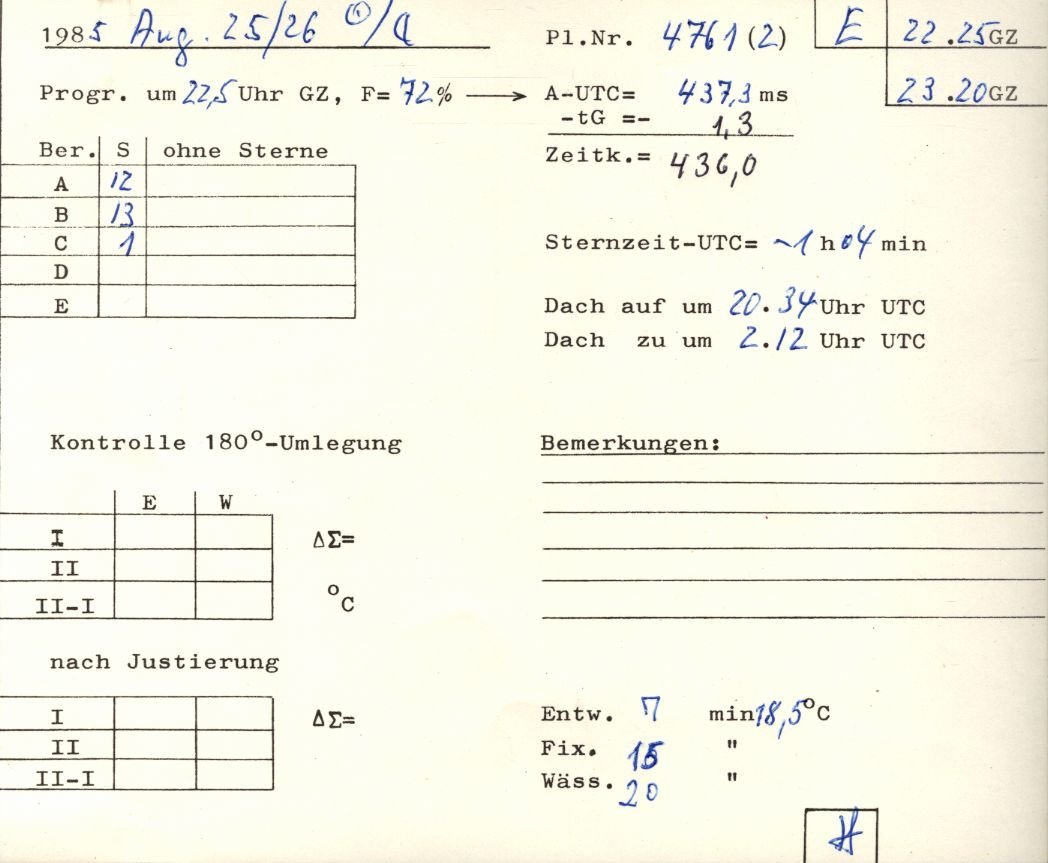 1985 Aug. 25/26 ☉/☾
Pl.Nr. 4761 (2)
E 22.25 GZ
23.20 GZ
Progr. um 22,5 Uhr GZ, F= 72% → A-UTC= 437,3 ms
-tG =- 1,3
Zeitk.= 436,0
Ber. S ohne Sterne
A 12
B 13
C 1
D
E
Sternzeit-UTC= ~1 h 04 min
Dach auf um 20.34 Uhr UTC
Dach zu um 2.12 Uhr UTC
Kontrolle 180°-Umlegung
E W
I ΔΣ=
II
II-I °C
nach Justierung
I ΔΣ=
II
II-I
Bemerkungen:
Entw. 7 min 18,5°C
Fix. 15 "
Wäss. 20 "